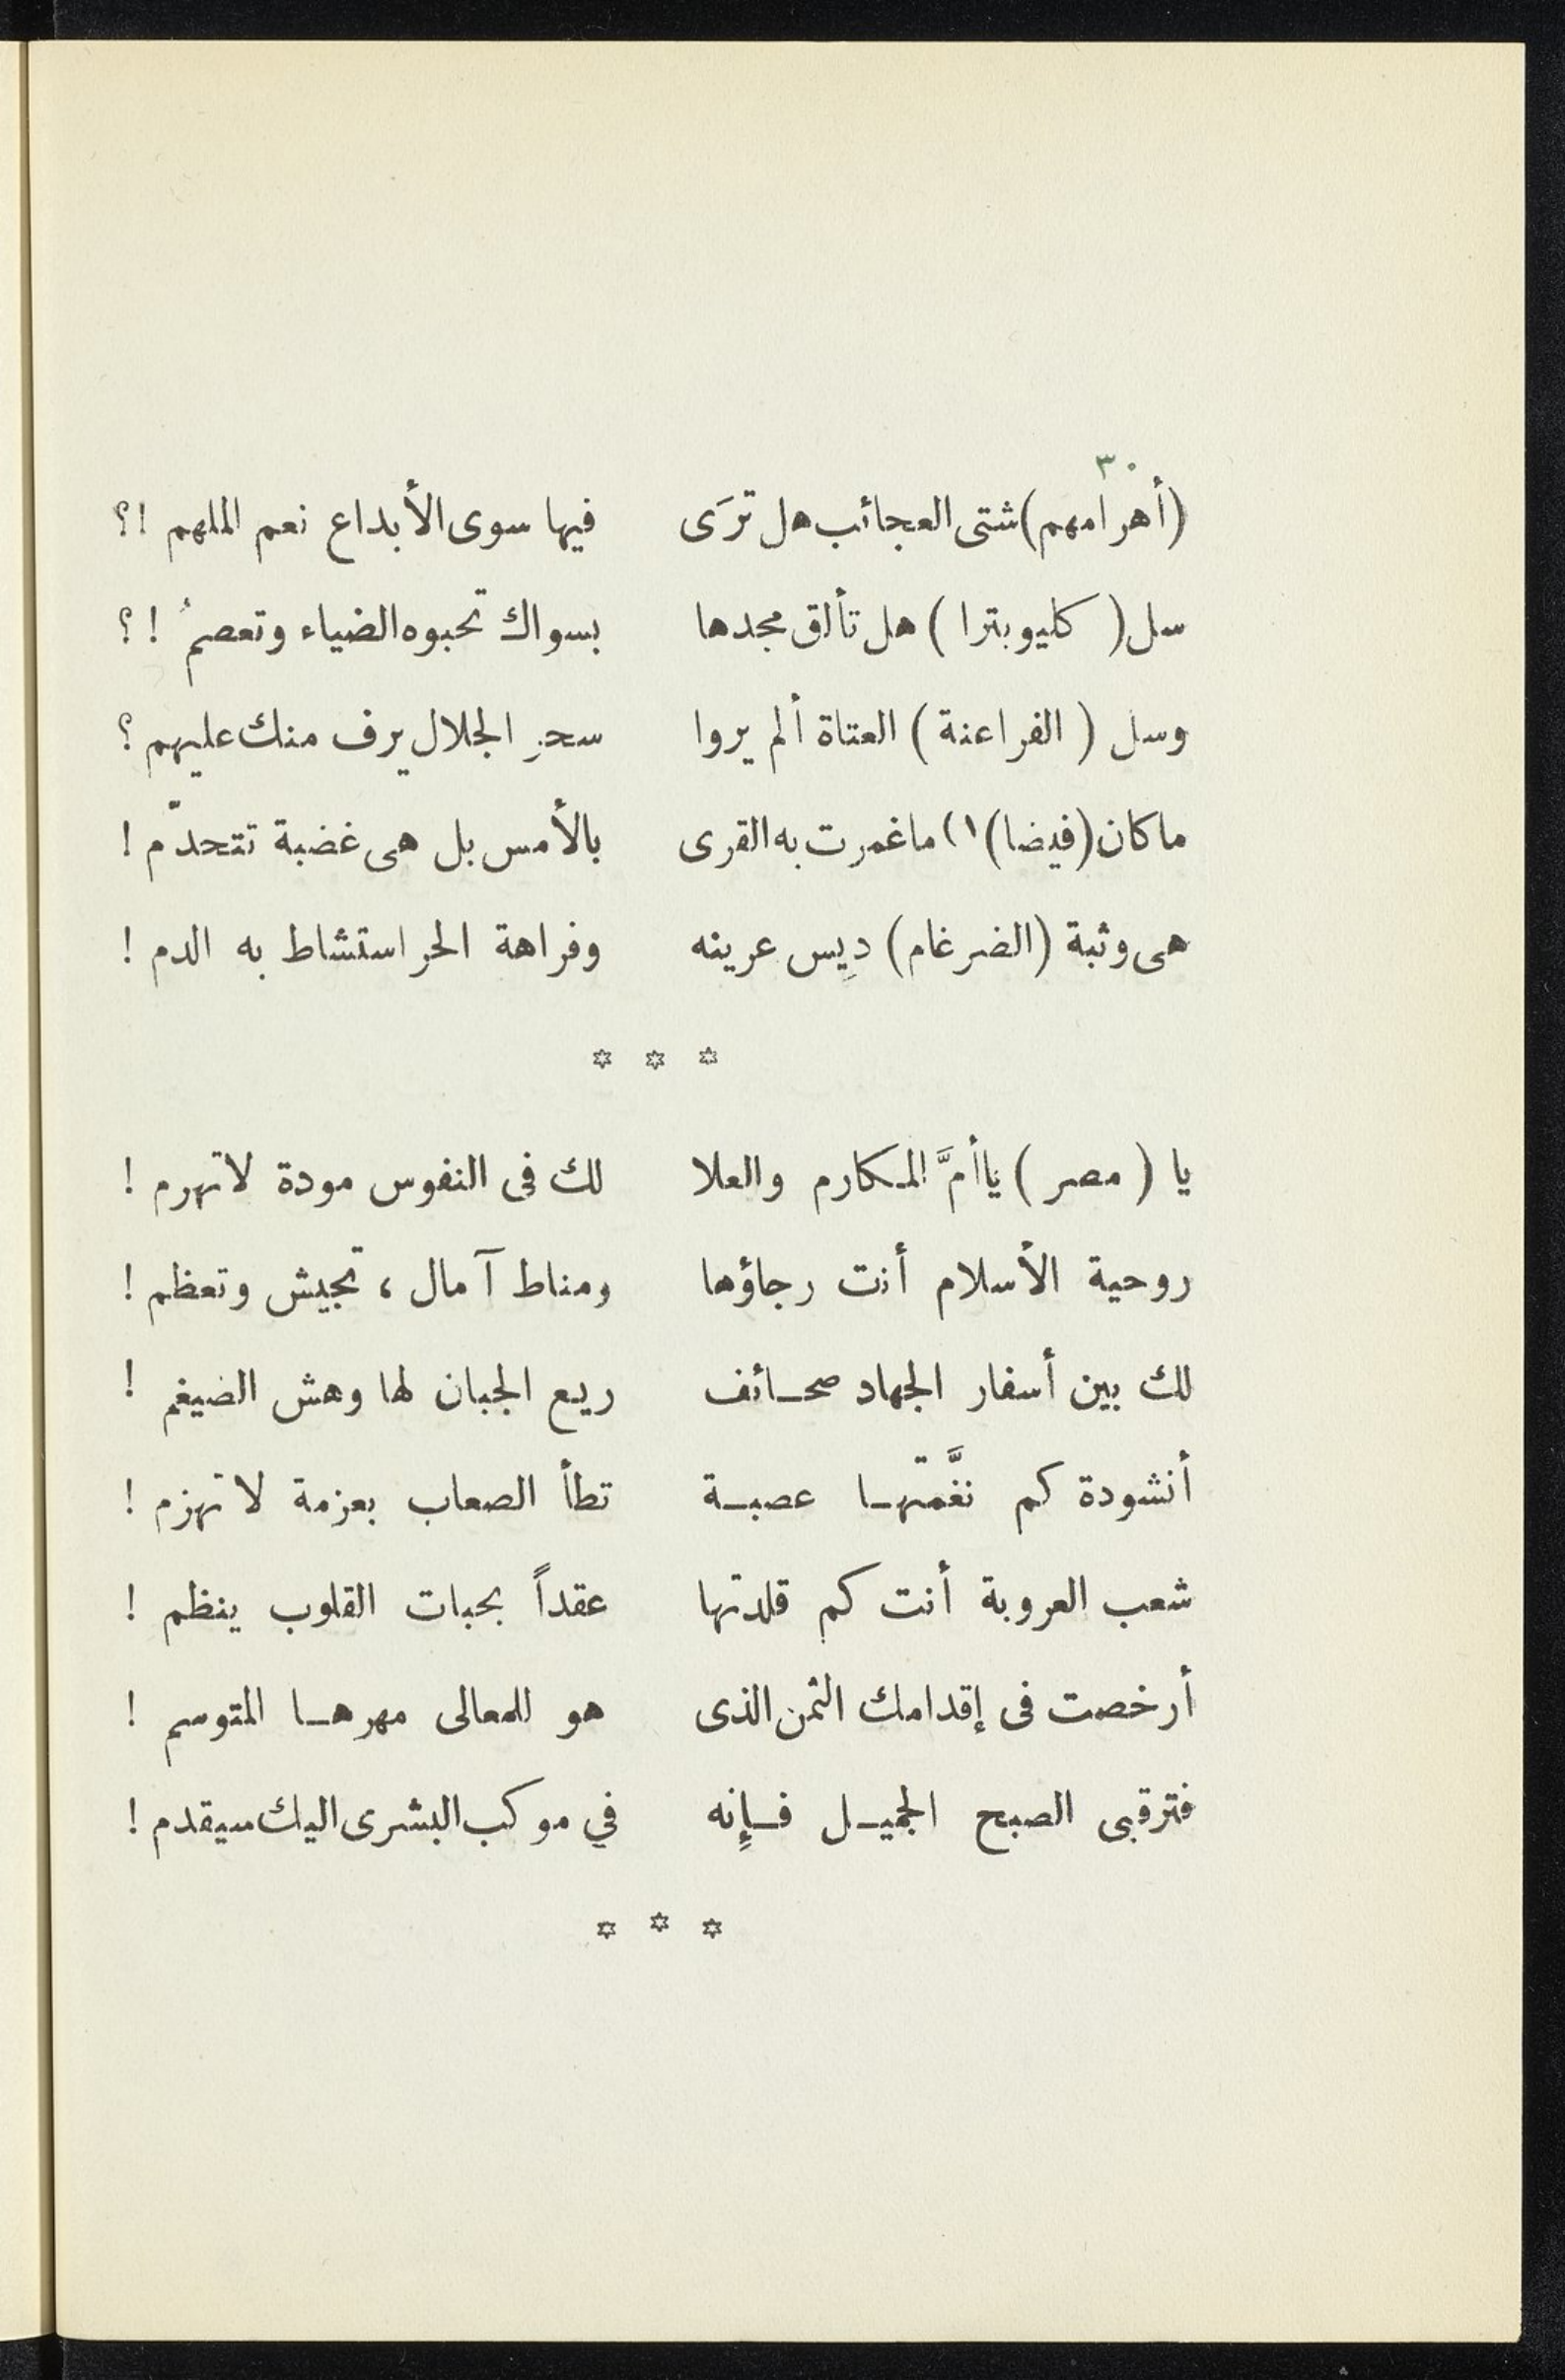 ٣٠
(أهرامهم) شتى العجائب هل ترَى فيها سوى الأبداع نعم الملهم !؟
سل ( كليوبترا ) هل تألق مجدها بسواك تحبوه الضياء وتعصمُ ! ؟
وسل ( الفراعنة ) العتاة ألم يروا سحرِ الجلال يرف منك عليهم ؟
ما كان (فيضا) ١) ما غمرت به القرى بالأمس بل هى غضبة تتحدّم !
هى وثبة (الضرغام) دِيس عرينه وفراهة الحر استشاط به الدم !
* * *
يا ( مصر ) ياأمَّ المكارم والعلا لك فى النفوس مودة لا تهرم !
روحية الأسلام أنت رجاؤها ومناط آمال ، تجيش وتعظم !
لك بين أسفار الجهاد صحائف ريع الجبان لها وهش الضيغم !
أنشودة كم نغَّمتها عصبة تطأ الصعاب بعزمة لا تهزم !
شعب العروبة أنت كم قلدتها عقداً بحبات القلوب ينظم !
أرخصت فى إقدامك الثمن الذى هو للمعالى مهرها المتوسم !
فترقبى الصبح الجميل فإنه في موكب البشرى اليك سيقدم !
* * *